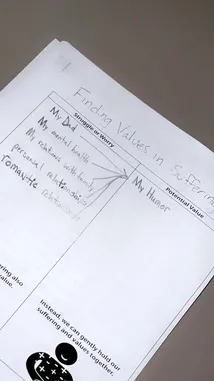 Finding Values in Suffering
Struggle or Worry
Potential Value
My Dad
My mental health
My relations with family
personal relationships
romantic relationships
My Humor
ering also
value.
Instead, we can gently hold our
suffering and values together.